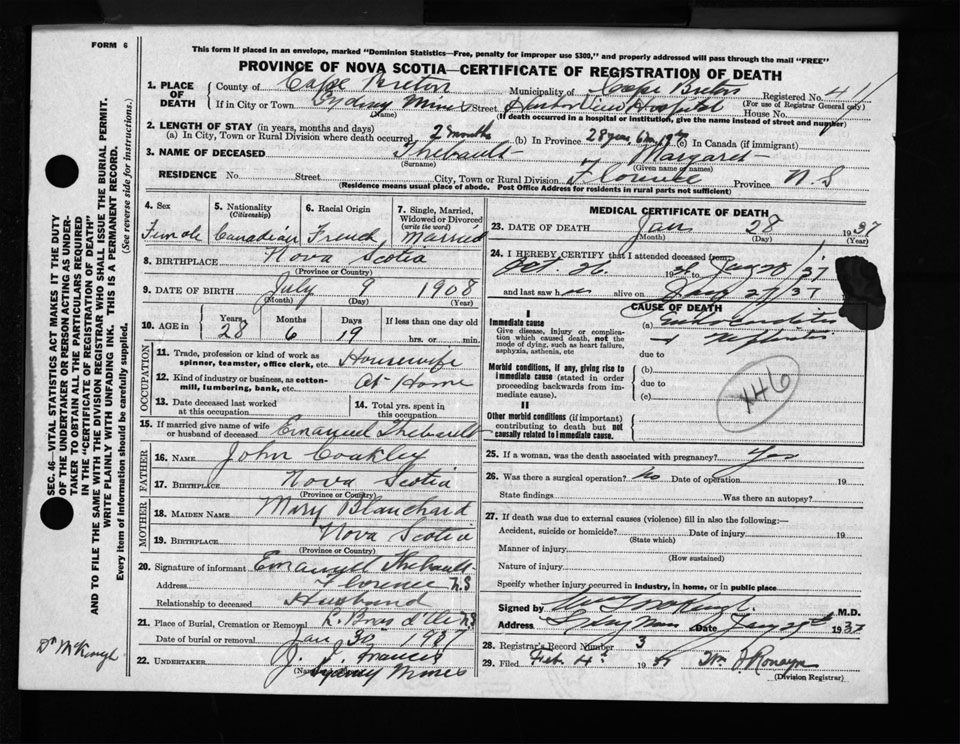 FORM 6
This form if placed in an envelope, marked "Dominion Statistics—Free, penalty for improper use $300," and properly addressed will pass through the mail "FREE"
PROVINCE OF NOVA SCOTIA—CERTIFICATE OF REGISTRATION OF DEATH
1. PLACE OF DEATH
County of Cape Breton Municipality of Cape Breton Registered No. 41
(For use of Registrar General only)
If in City or Town Sydney Mines Street Harbor View Hospital House No.
(Name) (If death occurred in a hospital or institution, give the name instead of street and number)
2. LENGTH OF STAY (in years, months and days)
(a) In City, Town or Rural Division where death occurred 2 months (b) In Province 28 years, 6 m 19 (c) In Canada (if immigrant)
3. NAME OF DECEASED Thebault Margaret
(Surname) (Given name or names)
RESIDENCE No. Street City, Town or Rural Division Florence Province N.S
(Residence means usual place of abode. Post Office Address for residents in rural parts not sufficient)
4. Sex Female
5. Nationality (Citizenship) Canadian
6. Racial Origin French
7. Single, Married, Widowed or Divorced (write the word) Married
8. BIRTHPLACE Nova Scotia
(Province or Country)
9. DATE OF BIRTH July 9 1908
(Month) (Day) (Year)
10. AGE in Years Months Days If less than one day old
28 6 19 hrs. or min.
OCCUPATION
11. Trade, profession or kind of work as spinner, teamster, office clerk, etc. Housewife
12. Kind of industry or business, as cotton-mill, lumbering, bank, etc. At Home
13. Date deceased last worked at this occupation
14. Total yrs. spent in this occupation
15. If married give name of wife or husband of deceased Emanuel Thebault
FATHER
16. NAME John Coakley
17. BIRTHPLACE Nova Scotia
(Province or Country)
MOTHER
18. MAIDEN NAME Mary Blanchard
19. BIRTHPLACE Nova Scotia
(Province or Country)
20. Signature of informant Emanuel Thebault
Address Florence N.S
Relationship to deceased Husband
21. Place of Burial, Cremation or Removal L. Bras d'Or N.S
Date of burial or removal Jan 30 1937
22. UNDERTAKER J. J. Francis
(Name) Sydney Mines
MEDICAL CERTIFICATE OF DEATH
23. DATE OF DEATH Jan 28 1937
(Month) (Day) (Year)
24. I HEREBY CERTIFY that I attended deceased from
Oct. 26 to Jan 28/37
and last saw h alive on Jan 27/37
CAUSE OF DEATH
I
Immediate cause
Give disease, injury or complication which caused death, not the mode of dying, such as heart failure, asphyxia, asthenia, etc
(a) Endocarditis
Nephritis
due to
Morbid conditions, if any, giving rise to immediate cause (stated in order proceeding backwards from immediate cause).
(b)
due to
(c)
146
II
Other morbid conditions (if important) contributing to death but not causally related to immediate cause.
25. If a woman, was the death associated with pregnancy? Yes
26. Was there a surgical operation? No Date of operation 19
State findings Was there an autopsy?
27. If death was due to external causes (violence) fill in also the following:—
Accident, suicide or homicide? Date of injury 19
(State which)
Manner of injury
(How sustained)
Nature of injury
Specify whether injury occurred in industry, in home, or in public place
Signed by M.D.
Address Sydney Mines Date Jan 29th 1937
28. Registrar's Record Number 3
29. Filed Feb 4th 1937 Wm J. Ronayn
(Division Registrar)
SEC. 46—VITAL STATISTICS ACT MAKES IT THE DUTY
OF THE UNDERTAKER OR PERSON ACTING AS UNDER-
TAKER TO OBTAIN ALL THE PARTICULARS REQUIRED
IN THE "CERTIFICATE OF REGISTRATION OF DEATH"
AND TO FILE THE SAME WITH THE DIVISION REGISTRAR WHO SHALL ISSUE THE BURIAL PERMIT.
WRITE PLAINLY WITH UNFADING INK. THIS IS A PERMANENT RECORD.
Every item of information should be carefully supplied. (See reverse side for instructions.)
Dr McKeough